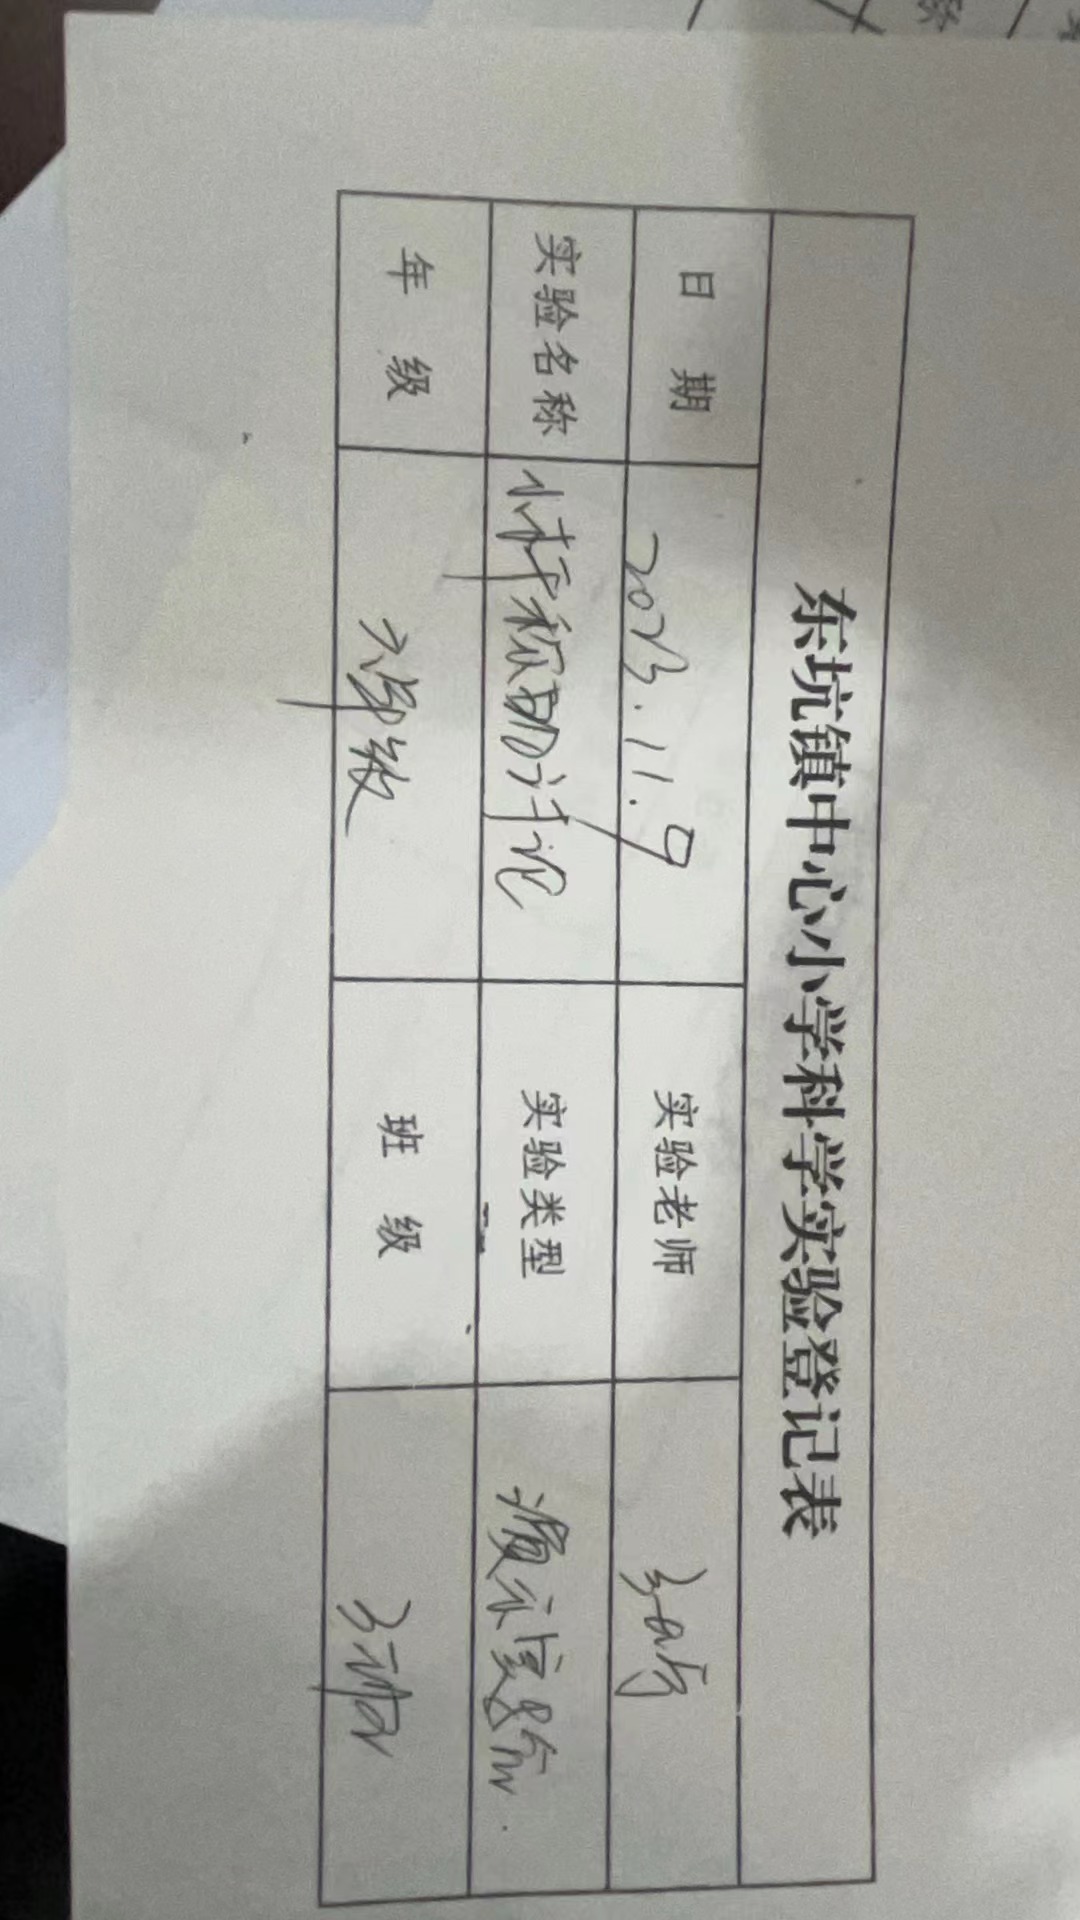 东坑镇中心小学科学实验登记表
日 期 2023.11.9 实验老师
实验名称 小杆秤的讨论 实验类型 演示实验
年 级 六年级 班 级